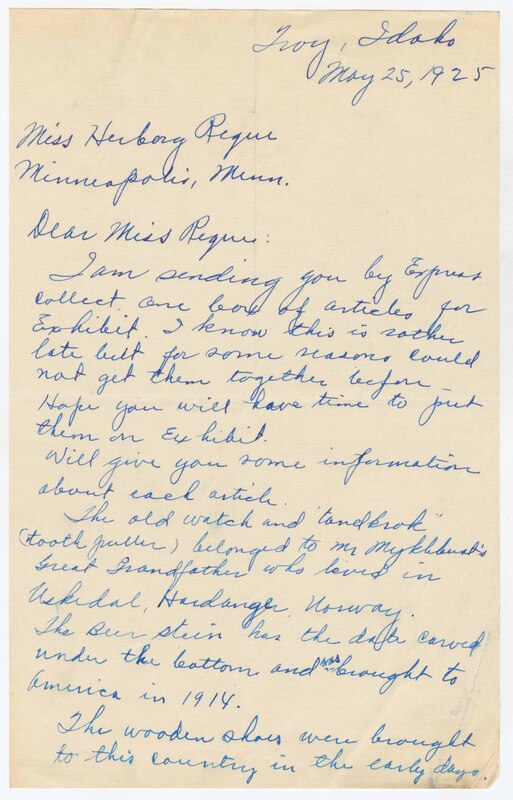 Troy, Idaho
May 25, 1925
Miss Herborg Reque
Minneapolis, Minn.
Dear Miss Reque:
I am sending you by Express
collect one box of articles for
Exhibit. I know this is rather
late but for some reasons could
not get them together before.
Hope you will have time to put
them on Exhibit.
Will give you some information
about each article.
The old watch and "tandkrok"
(tooth puller) belonged to Mr Myklebust's
Great Grandfather who lived in
Uskedal, Hardanger, Norway.
The Beer stein has the date carved
under the bottom and was brought to
America in 1914.
The wooden shoes were brought
to this country in the early days.